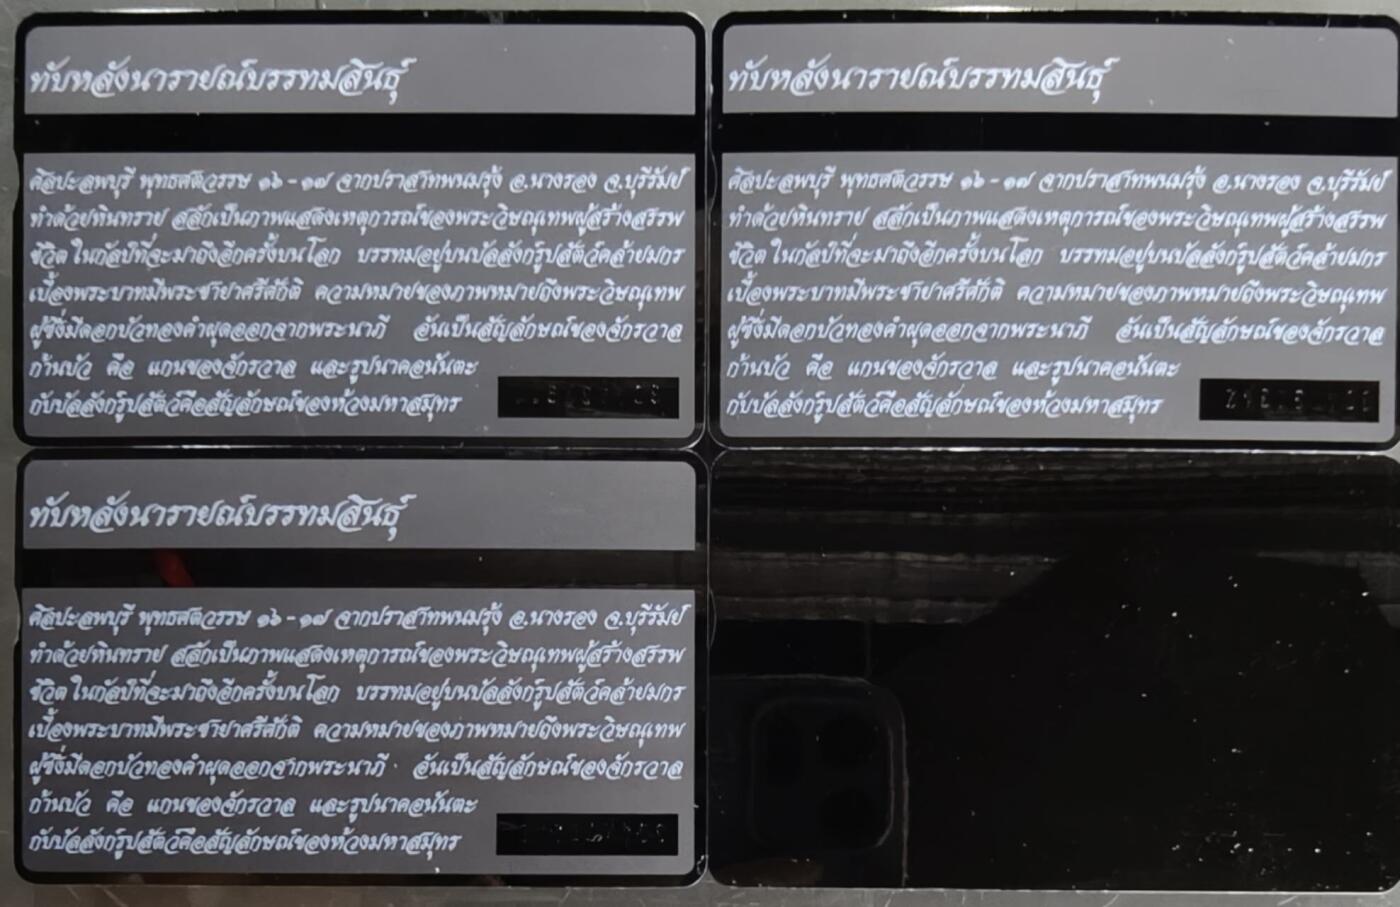 ทับหลังนารายณ์บรรทมสินธุ์
ศิลปะลพบุรี พุทธศตวรรษ ๑๖ - ๑๗ จากปราสาทพนมรุ้ง อ.นางรอง จ.บุรีรัมย์
ทำด้วยหินทราย สลักเป็นภาพแสดงเหตุการณ์ของพระวิษณุเทพผู้สร้างสรรพ
ชีวิต ในกัลป์ที่จะมาถึงอีกครั้งบนโลก บรรทมอยู่บนบัลลังก์รูปสัตว์คล้ายมกร
เบื้องพระบาทมีพระชายาศรีศักติ ความหมายของภาพหมายถึงพระวิษณุเทพ
ผู้ซึ่งมีดอกบัวทองคำผุดออกจากพระนาภี อันเป็นสัญลักษณ์ของจักรวาล
ก้านบัว คือ แกนของจักรวาล และรูปนาคอนันตะ
กับบัลลังก์รูปสัตว์คือสัญลักษณ์ของห้วงมหาสมุทร
ทับหลังนารายณ์บรรทมสินธุ์
ศิลปะลพบุรี พุทธศตวรรษ ๑๖ - ๑๗ จากปราสาทพนมรุ้ง อ.นางรอง จ.บุรีรัมย์
ทำด้วยหินทราย สลักเป็นภาพแสดงเหตุการณ์ของพระวิษณุเทพผู้สร้างสรรพ
ชีวิต ในกัลป์ที่จะมาถึงอีกครั้งบนโลก บรรทมอยู่บนบัลลังก์รูปสัตว์คล้ายมกร
เบื้องพระบาทมีพระชายาศรีศักติ ความหมายของภาพหมายถึงพระวิษณุเทพ
ผู้ซึ่งมีดอกบัวทองคำผุดออกจากพระนาภี อันเป็นสัญลักษณ์ของจักรวาล
ก้านบัว คือ แกนของจักรวาล และรูปนาคอนันตะ
กับบัลลังก์รูปสัตว์คือสัญลักษณ์ของห้วงมหาสมุทร
ทับหลังนารายณ์บรรทมสินธุ์
ศิลปะลพบุรี พุทธศตวรรษ ๑๖ - ๑๗ จากปราสาทพนมรุ้ง อ.นางรอง จ.บุรีรัมย์
ทำด้วยหินทราย สลักเป็นภาพแสดงเหตุการณ์ของพระวิษณุเทพผู้สร้างสรรพ
ชีวิต ในกัลป์ที่จะมาถึงอีกครั้งบนโลก บรรทมอยู่บนบัลลังก์รูปสัตว์คล้ายมกร
เบื้องพระบาทมีพระชายาศรีศักติ ความหมายของภาพหมายถึงพระวิษณุเทพ
ผู้ซึ่งมีดอกบัวทองคำผุดออกจากพระนาภี อันเป็นสัญลักษณ์ของจักรวาล
ก้านบัว คือ แกนของจักรวาล และรูปนาคอนันตะ
กับบัลลังก์รูปสัตว์คือสัญลักษณ์ของห้วงมหาสมุทร